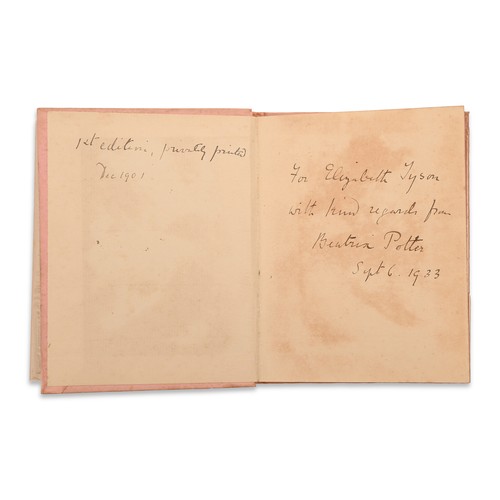 1st edition, privately printed
Dec 1901
For Elizabeth Tyson
with kind regards from
Beatrix Potter
Sept 6. 1933